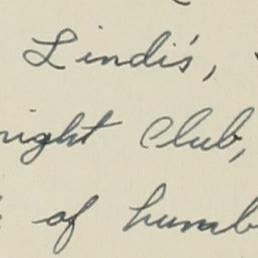 Lindi's,
night Club,
of humb